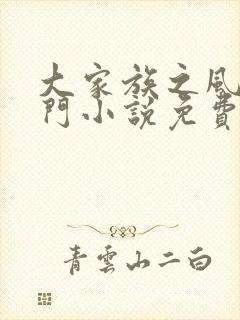 大家族之風
門小說免費
青雲山二白